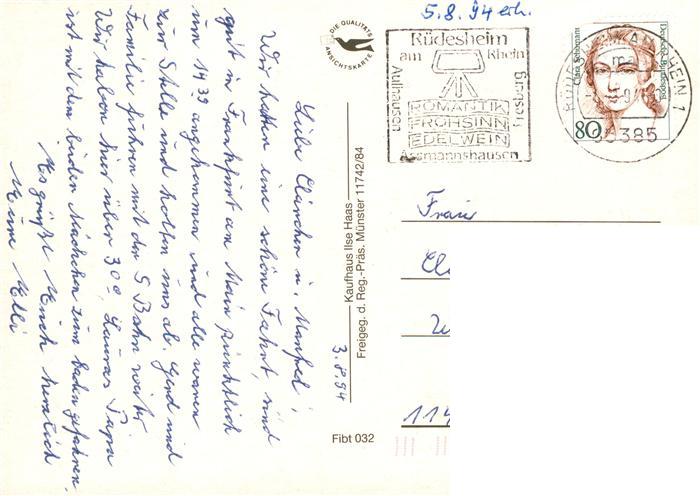 5.8.94 erh.
Rüdesheim
am Rhein
Aulhausen
Presberg
ROMANTIK
FROHSINN
EDELWEIN
Assmannshausen
Clara Schumann
Deutsche Bundespost
80
65385
DIE QUALITÄTS
ANSICHTSKARTE
Liebe Clärchen u. Manfred,
Wir hatten eine schöne Fahrt, sind
gut in Frankfurt am Main pünktlich
um 14 39 angekommen und alle waren
zur Stelle und holten uns ab. Gerd und
Familie fuhren mit der S Bahn weiter.
Wir haben hier über 30°, Lauras Papa
ist mit den beiden Mädchen zum baden gefahren.
Es grüßt Euch herzlich
Eure Elli
Kaufhaus Ilse Haas
Freigeg. d. Reg.-Präs. Münster 11742/84
3.8.94
Fibt 032
Frau
114